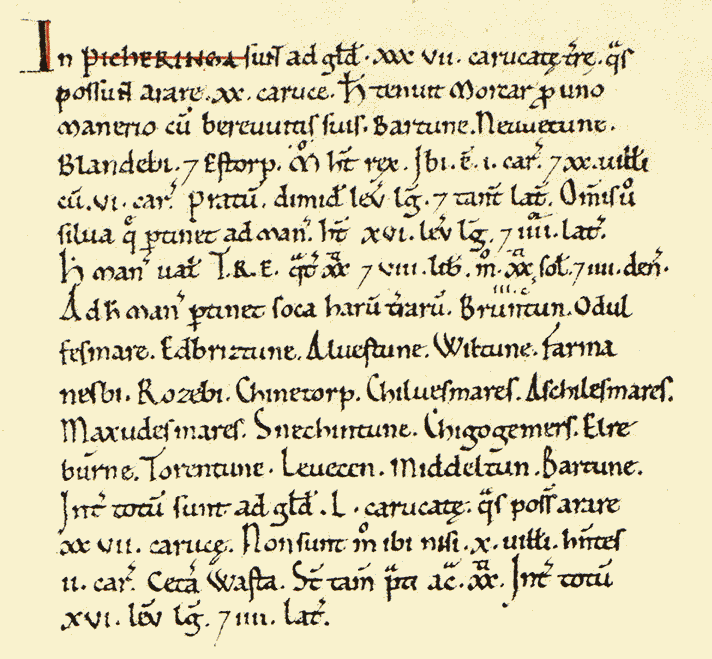 In PICHERINGA suñ ad gl̃d . xxx vii . carucatę . tr̃ę . q̃s
possuñ arare . xx . caruce . H̃ tenuit Morcar ꝓ uno
manerio cū bereuuitis suis . Bartune . Neuuetune .
Blandebi . ⁊ Estorp . M̊ ht̄ rex . Ibi . ē . i . car̃ . ⁊ xx . uiłłi
cū . vi . car̃ . Pratū . dimid̃ leṽ lḡ . ⁊ tant̄ lat̃ . Om̄is ů
silua q̊ ꝑtinet ad man̄ . ht̄ xvi . leṽ lḡ . ⁊ iiii . lat̃ .
H̃ man̄ uał T.R.E. q̃t xx ⁊ viii . lib̃ . m̊ . xx sol̃ . ⁊ iiii . den̄ .
Ad h̃ man̄ ꝑtinet soca harū tr̃arū . Bruntun . Odul
fesmare . Edbriztune . Aluestune . Wiltune . Farma
nesbi . Rozebi . Chinetorp . Chiluesmares . Aschilesmares .
Maxudesmares . Snechintune . Chigogemers . Elre
burne . Torentune . Leuecen . Middeltun . Bartune .
Int̃ totū sunt ad gl̃d . L . carucatę . q̃s poss̃ arare
xx vii . carucę . Non sunt m̊ ibi nisi . x . uiłłi . hñtes
ii . car̃ . Cet̃a Wasta . St̃ tam̄ p̃ti ac̃ . xx . Int̃ totū
xvi . leṽ lḡ . ⁊ iiii . lat̃ .